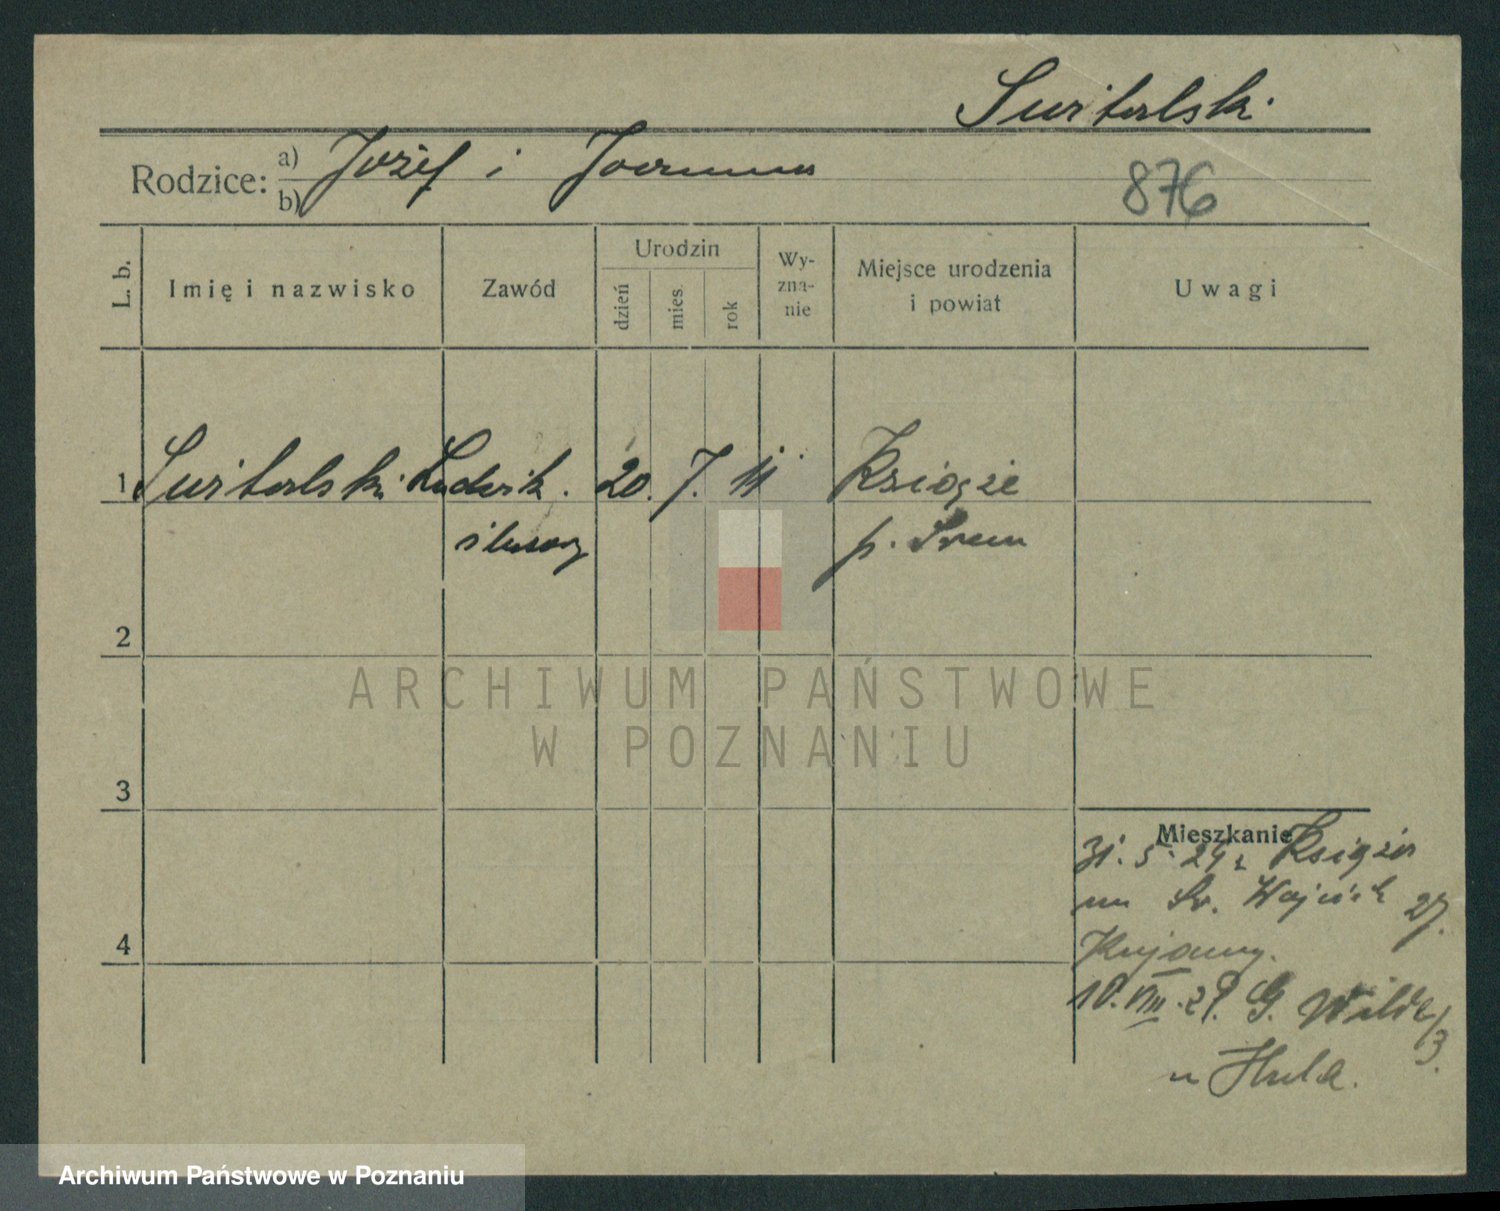 Switalski.
Rodzice: a) Józef i Joanna
b)
876
L. b.
Imię i nazwisko
Zawód
Urodzin
dzień
mies.
rok
Wy-
zna-
nie
Miejsce urodzenia
i powiat
Uwagi
1 Switalski Ludwik. 20. 7. 11 Książe
ślusarz p. Śrem
2
ARCHIWUM PAŃSTWOWE
W POZNANIU
3
Mieszkanie
31. 5. 29 z Książa
na Św. Wojciech 27.
10. VIII. 29. G. Wilda
u
4
Archiwum Państwowe w Poznaniu